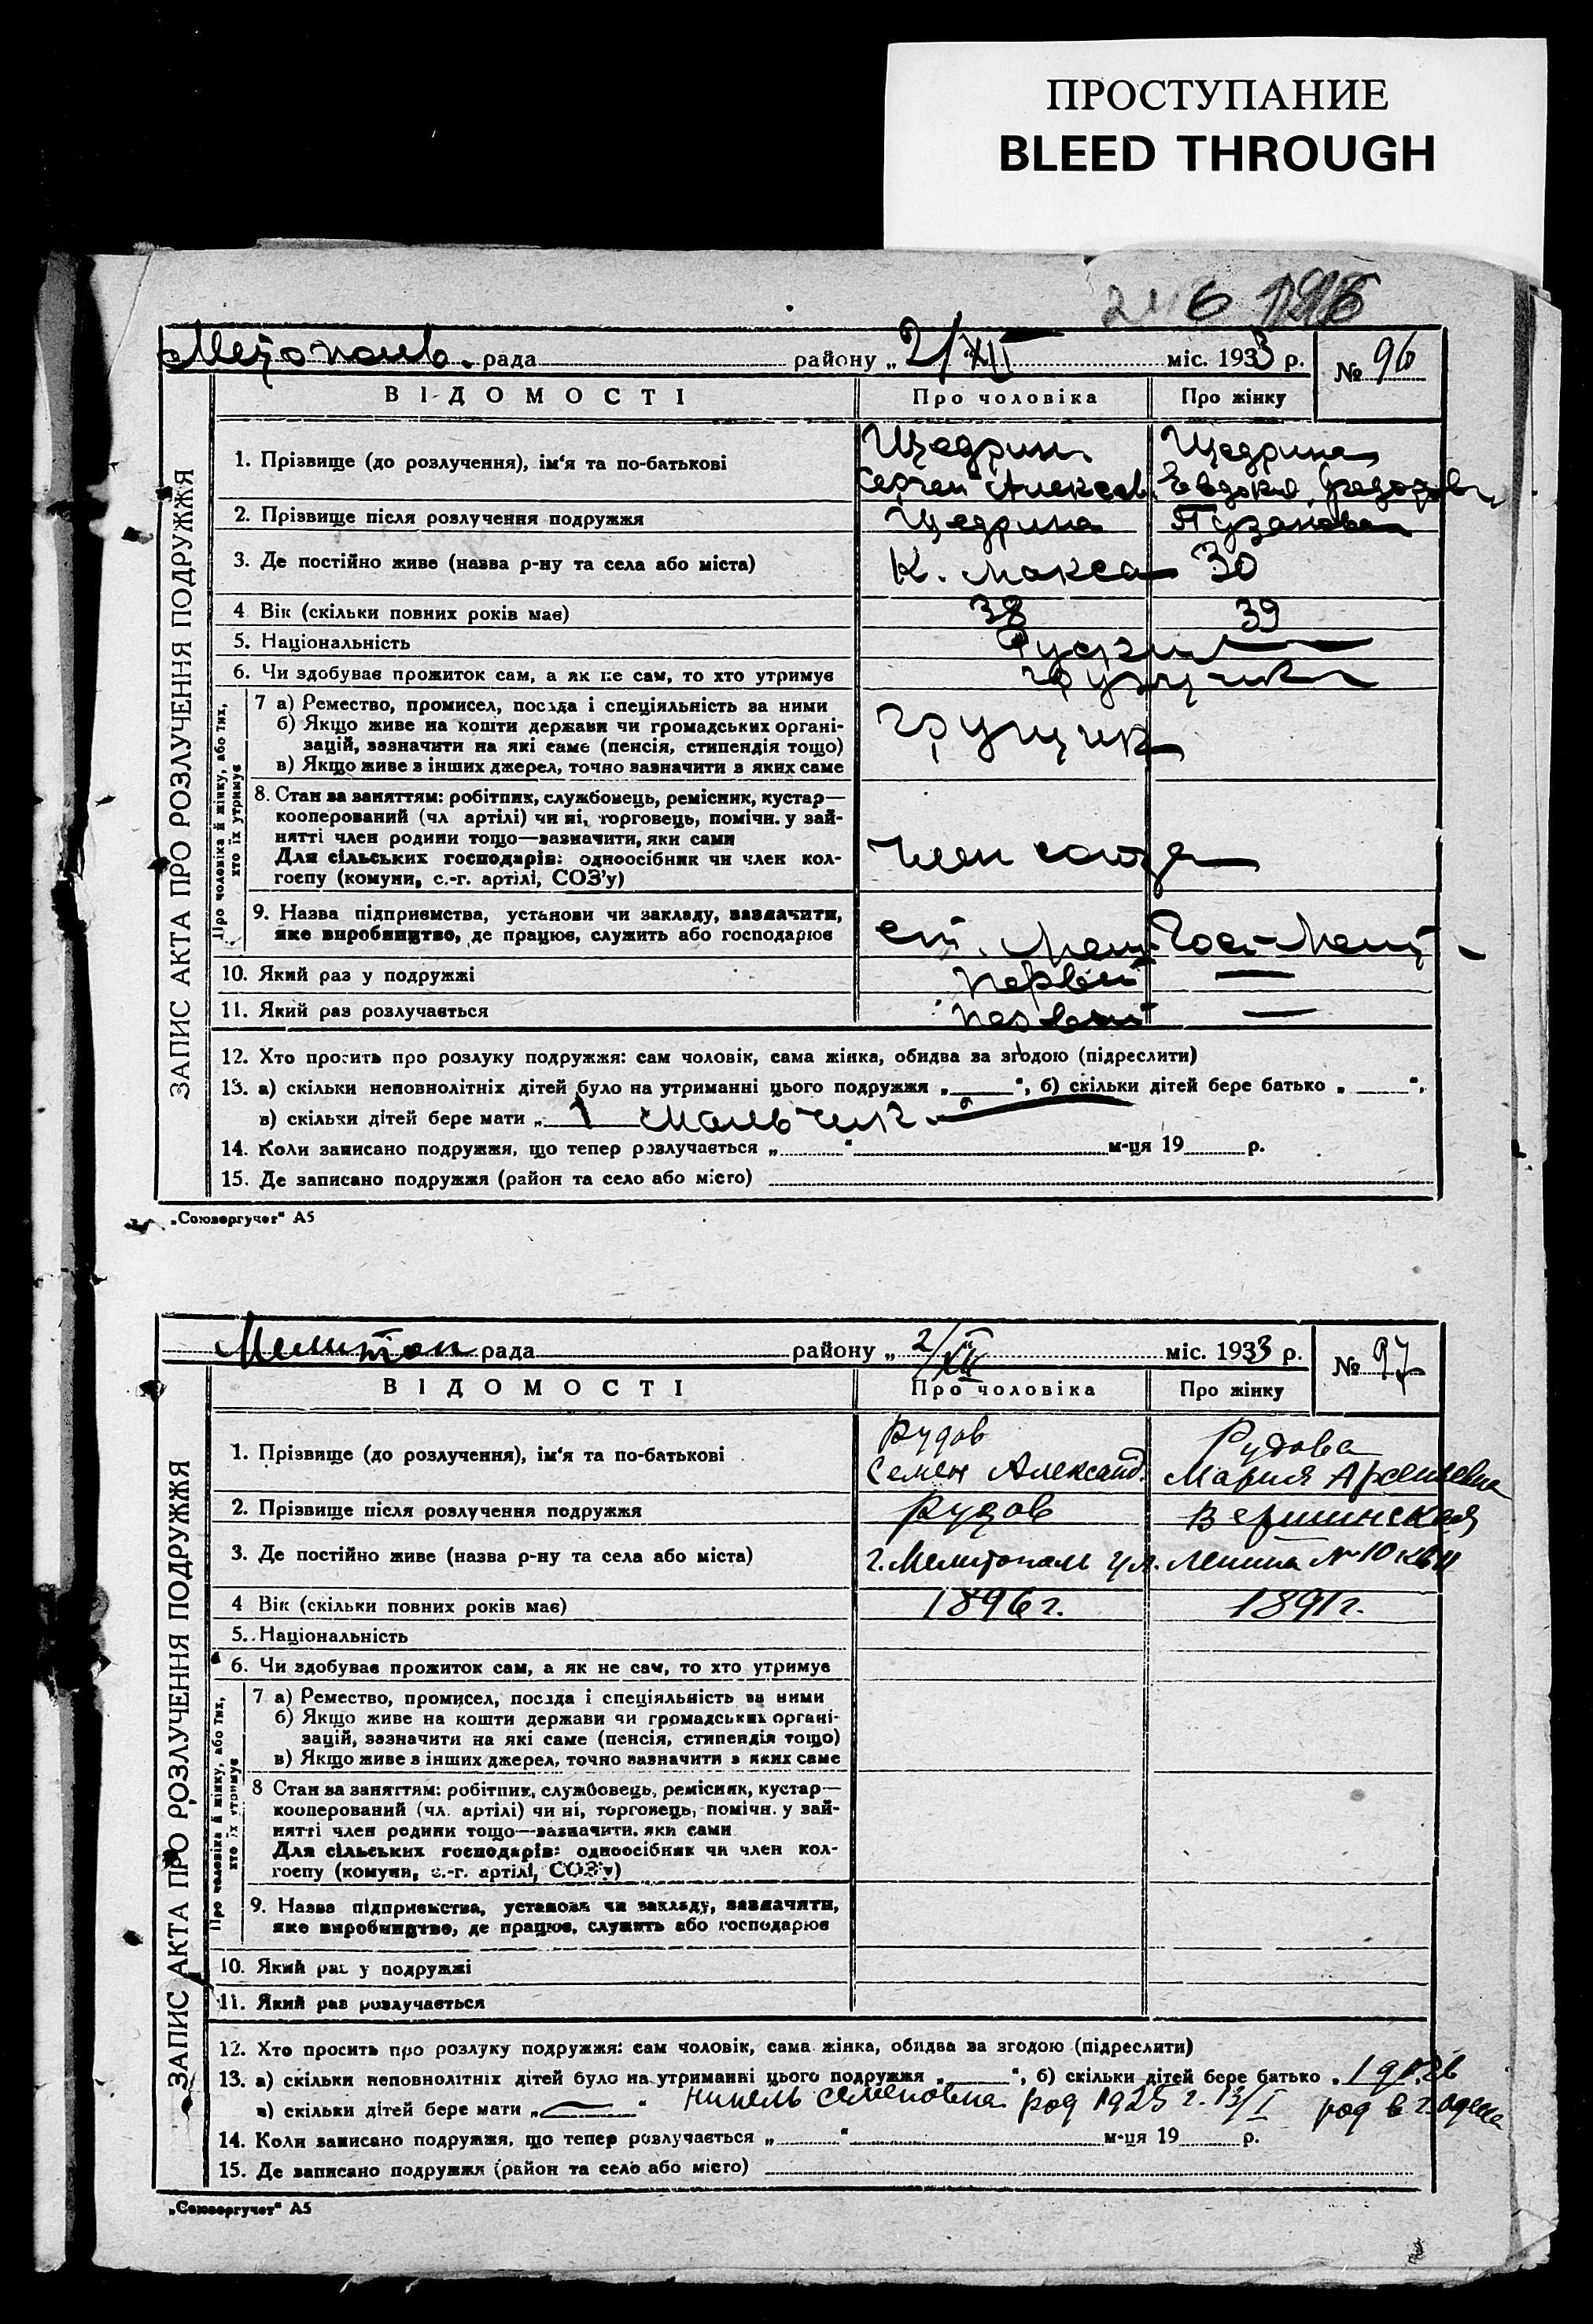 ПРОСТУПАНИЕ
BLEED THROUGH
рада районy „ 2/XII міс. 1933 р. № 96
ВІДОМОСТІ Про чоловіка Про жінку
ЗАПИС АКТА ПРО РОЗЛУЧЕННЯ ПОДРУЖЖЯ
1. Прізвище (до розлучення), ім'я та по-батькові Щедрин Щедрина
Сергей Алексеев.
2. Прізвище після розлучення подружжя Пузанова
3. Де постійно живе (назва р-ну та села або міста) К. Макса 30
4 Вік (скільки повних років має) 38 39
5. Національність
6. Чи здобуває прожиток сам, а як не сам, то хто утримує
Про чоловіка й жінку, або тих, хто їх утримує
7 а) Ремество, промисел, посада і спеціяльність за ними
б) Якщо живе на кошти держави чи громадських органі-
зацій, зазначити на які саме (пенсія, стипендія тощо)
в) Якщо живе з інших джерел, точно зазначити з яких саме
8. Стан за заняттям: робітник, службовець, ремісник, кустар—
кооперований (чл артілі) чи ні, торговець, помічн. у зай-
нятті член родини тощо—зазначити, яки сами
Для сільських господарів: одноосібник чи член кол-
госпу (комуни, с.-г. артілі, СОЗ'у) член союза
9. Назва підприємства, установи чи закладу, зазначити,
яке виробництво, де працює, служить або господарює
10. Який раз у подружжі первый —
11. Який раз розлучається —
12. Хто просить про розлуку подружжя: сам чоловік, сама жінка, обидва за згодою (підреслити)
13. а) скільки неповнолітніх дітей було на утриманні цього подружжя „ “, б) скільки дітей бере батько „ “,
в) скільки дітей бере мати „ 1 мальчик
14. Коли записано подружжя, що тепер розлучається „ “ м-ця 19 р.
15. Де записано подружжя (район та село або місто)
„Союзоргучет“ А5
Мелитоп рада району „ 2/XII міс. 1933 р. № 97
ВІДОМОСТІ Про чоловіка Про жінку
ЗАПИС АКТА ПРО РОЗЛУЧЕННЯ ПОДРУЖЖЯ
1. Прізвище (до розлучення), ім'я та по-батькові Рудов Рудова
Семен Александ. Мария Арсентьевна
2. Прізвище після розлучення подружжя Рудов Вершинская
3. Де постійно живе (назва р-ну та села або міста) г. Мелитополь ул. Ленина № 10
4 Вік (скільки повних років має) 1896 г. 1891 г.
5. Національність
6. Чи здобуває прожиток сам, а як не сам, то хто утримує
Про чоловіка й жінку, або тих, хто їх утримує
7 а) Ремество, промисел, посада і спеціяльність за ними
б) Якщо живе на кошти держави чи громадських органі-
зацій, зазначити на які саме (пенсія, стипендія тощо)
в) Якщо живе з інших джерел, точно зазначити з яких саме
8 Стан за заняттям: робітник, службовець, ремісник, кустар—
кооперований (чл. артілі) чи ні, торговець, помічн. у зай-
нятті член родини тощо—зазначити, яки сами
Для сільських господарів: одноосібник чи член кол-
госпу (комуни, с.-г. артілі, СОЗ'у)
9. Назва підприємства, установи чи закладу, зазначити,
яке виробництво, де працює, служить або господарює
10. Який раз у подружжі
11. Який раз розлучається
12. Хто просить про розлуку подружжя: сам чоловік, сама жінка, обидва за згодою (підреслити)
13. а) скільки неповнолітніх дітей було на утриманні цього подружжя „ “, б) скільки дітей бере батько „ 1
в) скільки дітей бере мати „ — “ Нинель Семеновна род 1925 г. 13/I род в г. Одесса
14. Коли записано подружжя, що тепер розлучається „ “ м-ця 19 р.
15. Де записано подружжя (район та село або місто)
„Союзоргучет“ А5